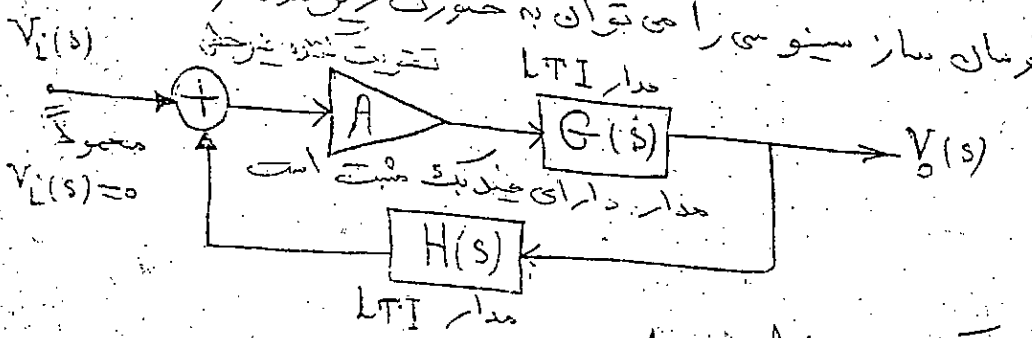 نوسان ساز سینوسی را می توان به صورت زیر
Vi(s)
تقویت کننده غیرخطی
مدار LTI
+
A
G(s)
Vo(s)
معمولاً
Vi(s)=0
مدار دارای فیدبک مثبت است
H(s)
مدار LTI